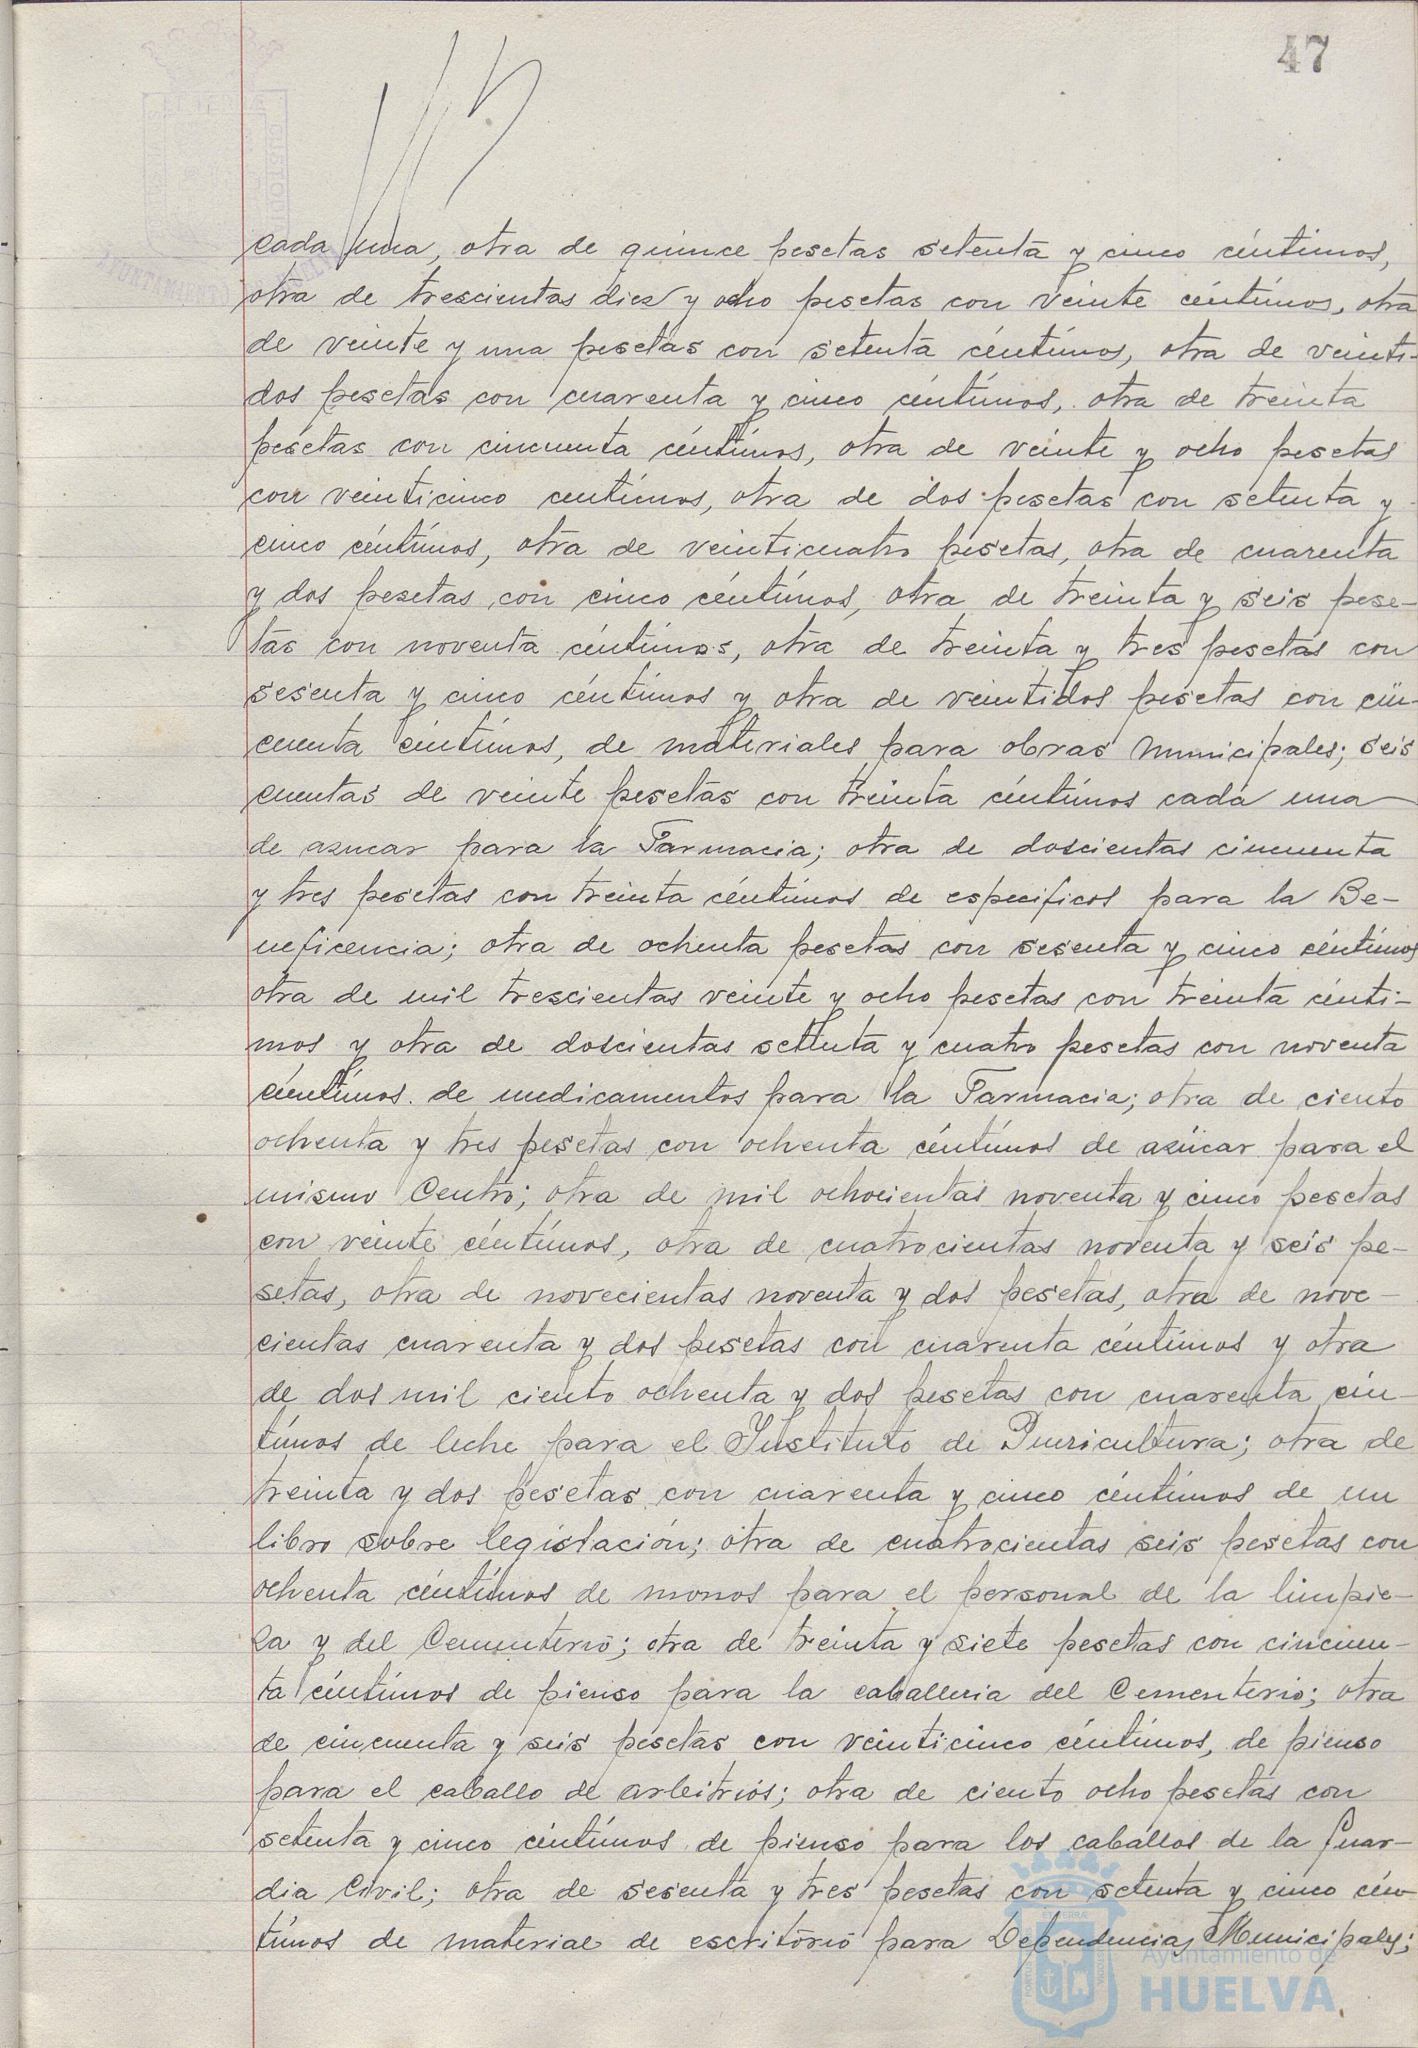 47
cada una, otra de quince pesetas setenta y cinco céntimos,
otra de trescientas diez y ocho pesetas con veinte céntimos, otra
de veinte y una pesetas con setenta céntimos, otra de veinti-
dos pesetas con cuarenta y cinco céntimos, otra de treinta
pesetas con cincuenta céntimos, otra de veinte y ocho pesetas
con veinticinco centimos, otra de dos pesetas con setenta y
cinco céntimos, otra de veinticuatro pesetas, otra de cuarenta
y dos pesetas con cinco céntimos, otra de treinta y seis pese-
tas con noventa céntimos, otra de treinta y tres pesetas con
sesenta y cinco céntimos y otra de veintidos pesetas con cin-
cuenta céntimos, de materiales para obras Municipales; seis
cuentas de veinte pesetas con treinta céntimos cada una
de azucar para la Farmacia; otra de doscientas cincuenta
y tres pesetas con treinta céntimos de especificos para la Be-
neficencia; otra de ochenta pesetas con sesenta y cinco céntimos
otra de mil trescientas veinte y ocho pesetas con treinta cénti-
mos y otra de doscientas setenta y cuatro pesetas con noventa
céntimos. de medicamentos para la Farmacia; otra de ciento
ochenta y tres pesetas con ochenta céntimos de azúcar para el
mismo Centro; otra de mil ochocientas noventa y cinco pesetas
con veinte céntimos, otra de cuatrocientas noventa y seis pe-
setas, otra de novecientas noventa y dos pesetas, otra de nove-
cientas cuarenta y dos pesetas con cuarenta céntimos y otra
de dos mil ciento ochenta y dos pesetas con cuarenta cén-
timos de leche para el Instituto de Puericultura; otra de
treinta y dos pesetas con cuarenta y cinco céntimos de un
libro sobre legislación; otra de cuatrocientas seis pesetas con
ochenta céntimos de monos para el personal de la limpie-
za y del Cementerio; otra de treinta y siete pesetas con cincuen-
ta céntimos de pienso para la caballeria del Cementerio; otra
de cincuenta y seis pesetas con veinticinco céntimos, de pienso
para el caballo de arbitrios; otra de ciento ocho pesetas con
setenta y cinco céntimos de pienso para los caballos de la Guar-
dia Civil; otra de sesenta y tres pesetas con setenta y cinco cén-
timos de material de escritorio para Dependencias Municipales;
Ayuntamiento de
HUELVA